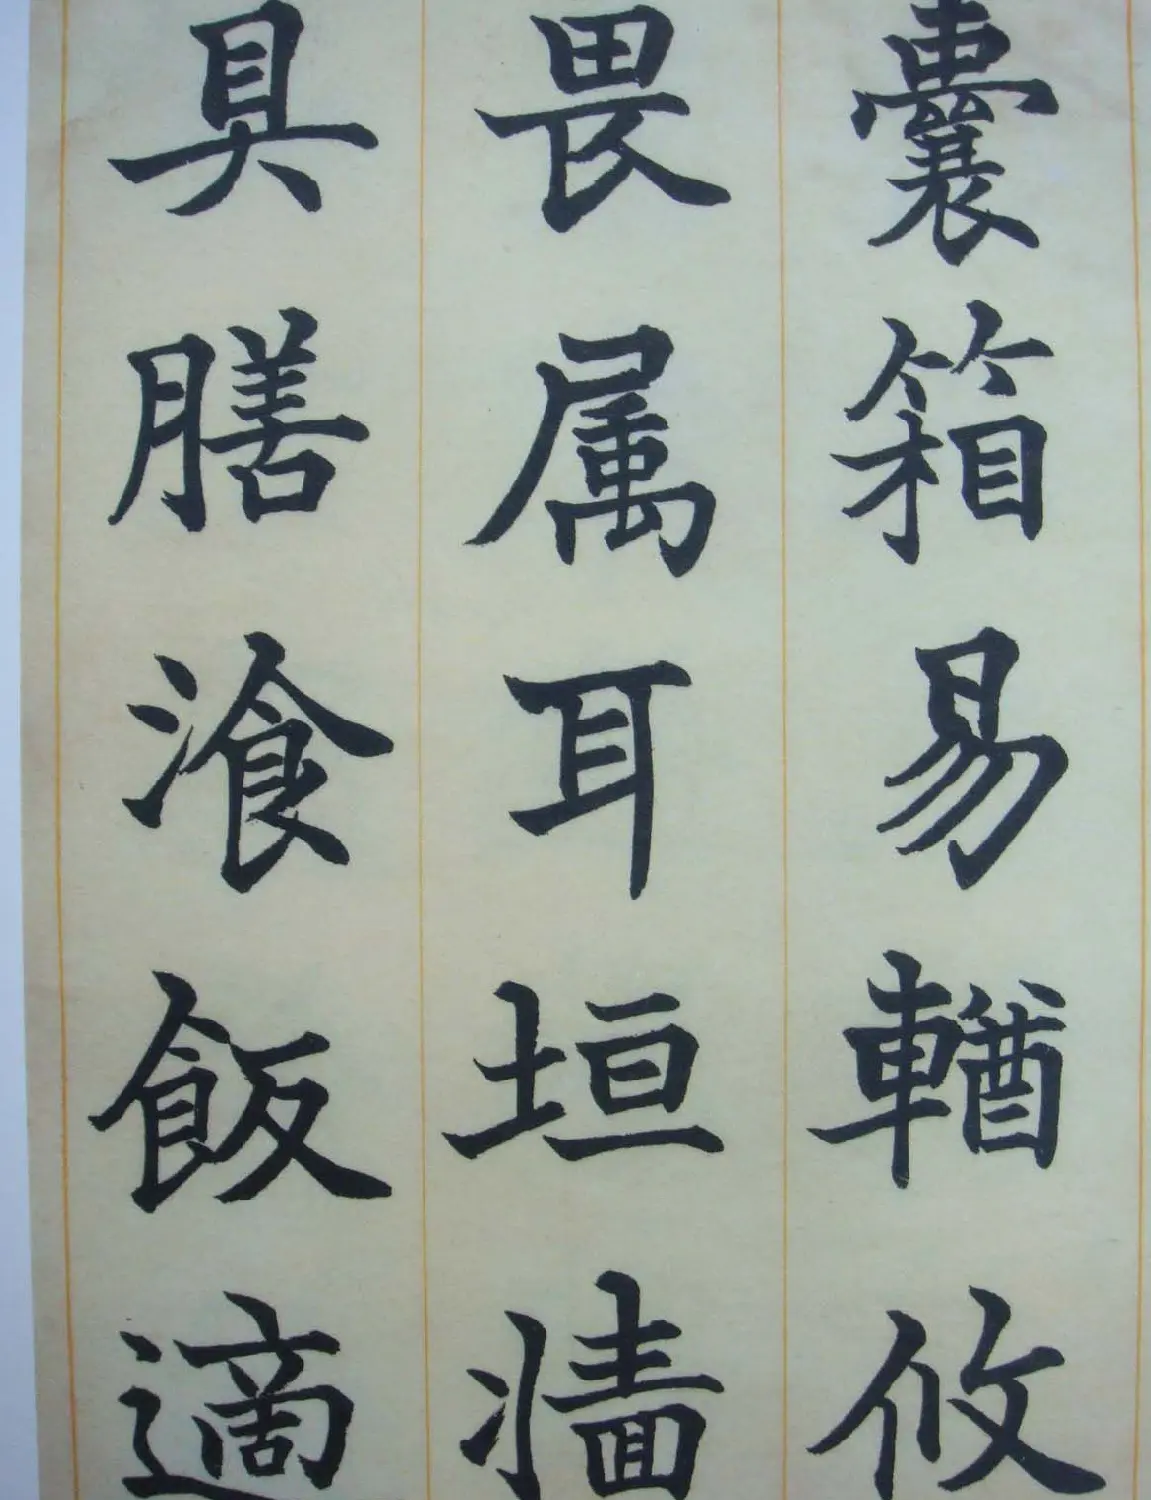 囊箱易輶攸
畏属耳垣牆
具膳飡飯適